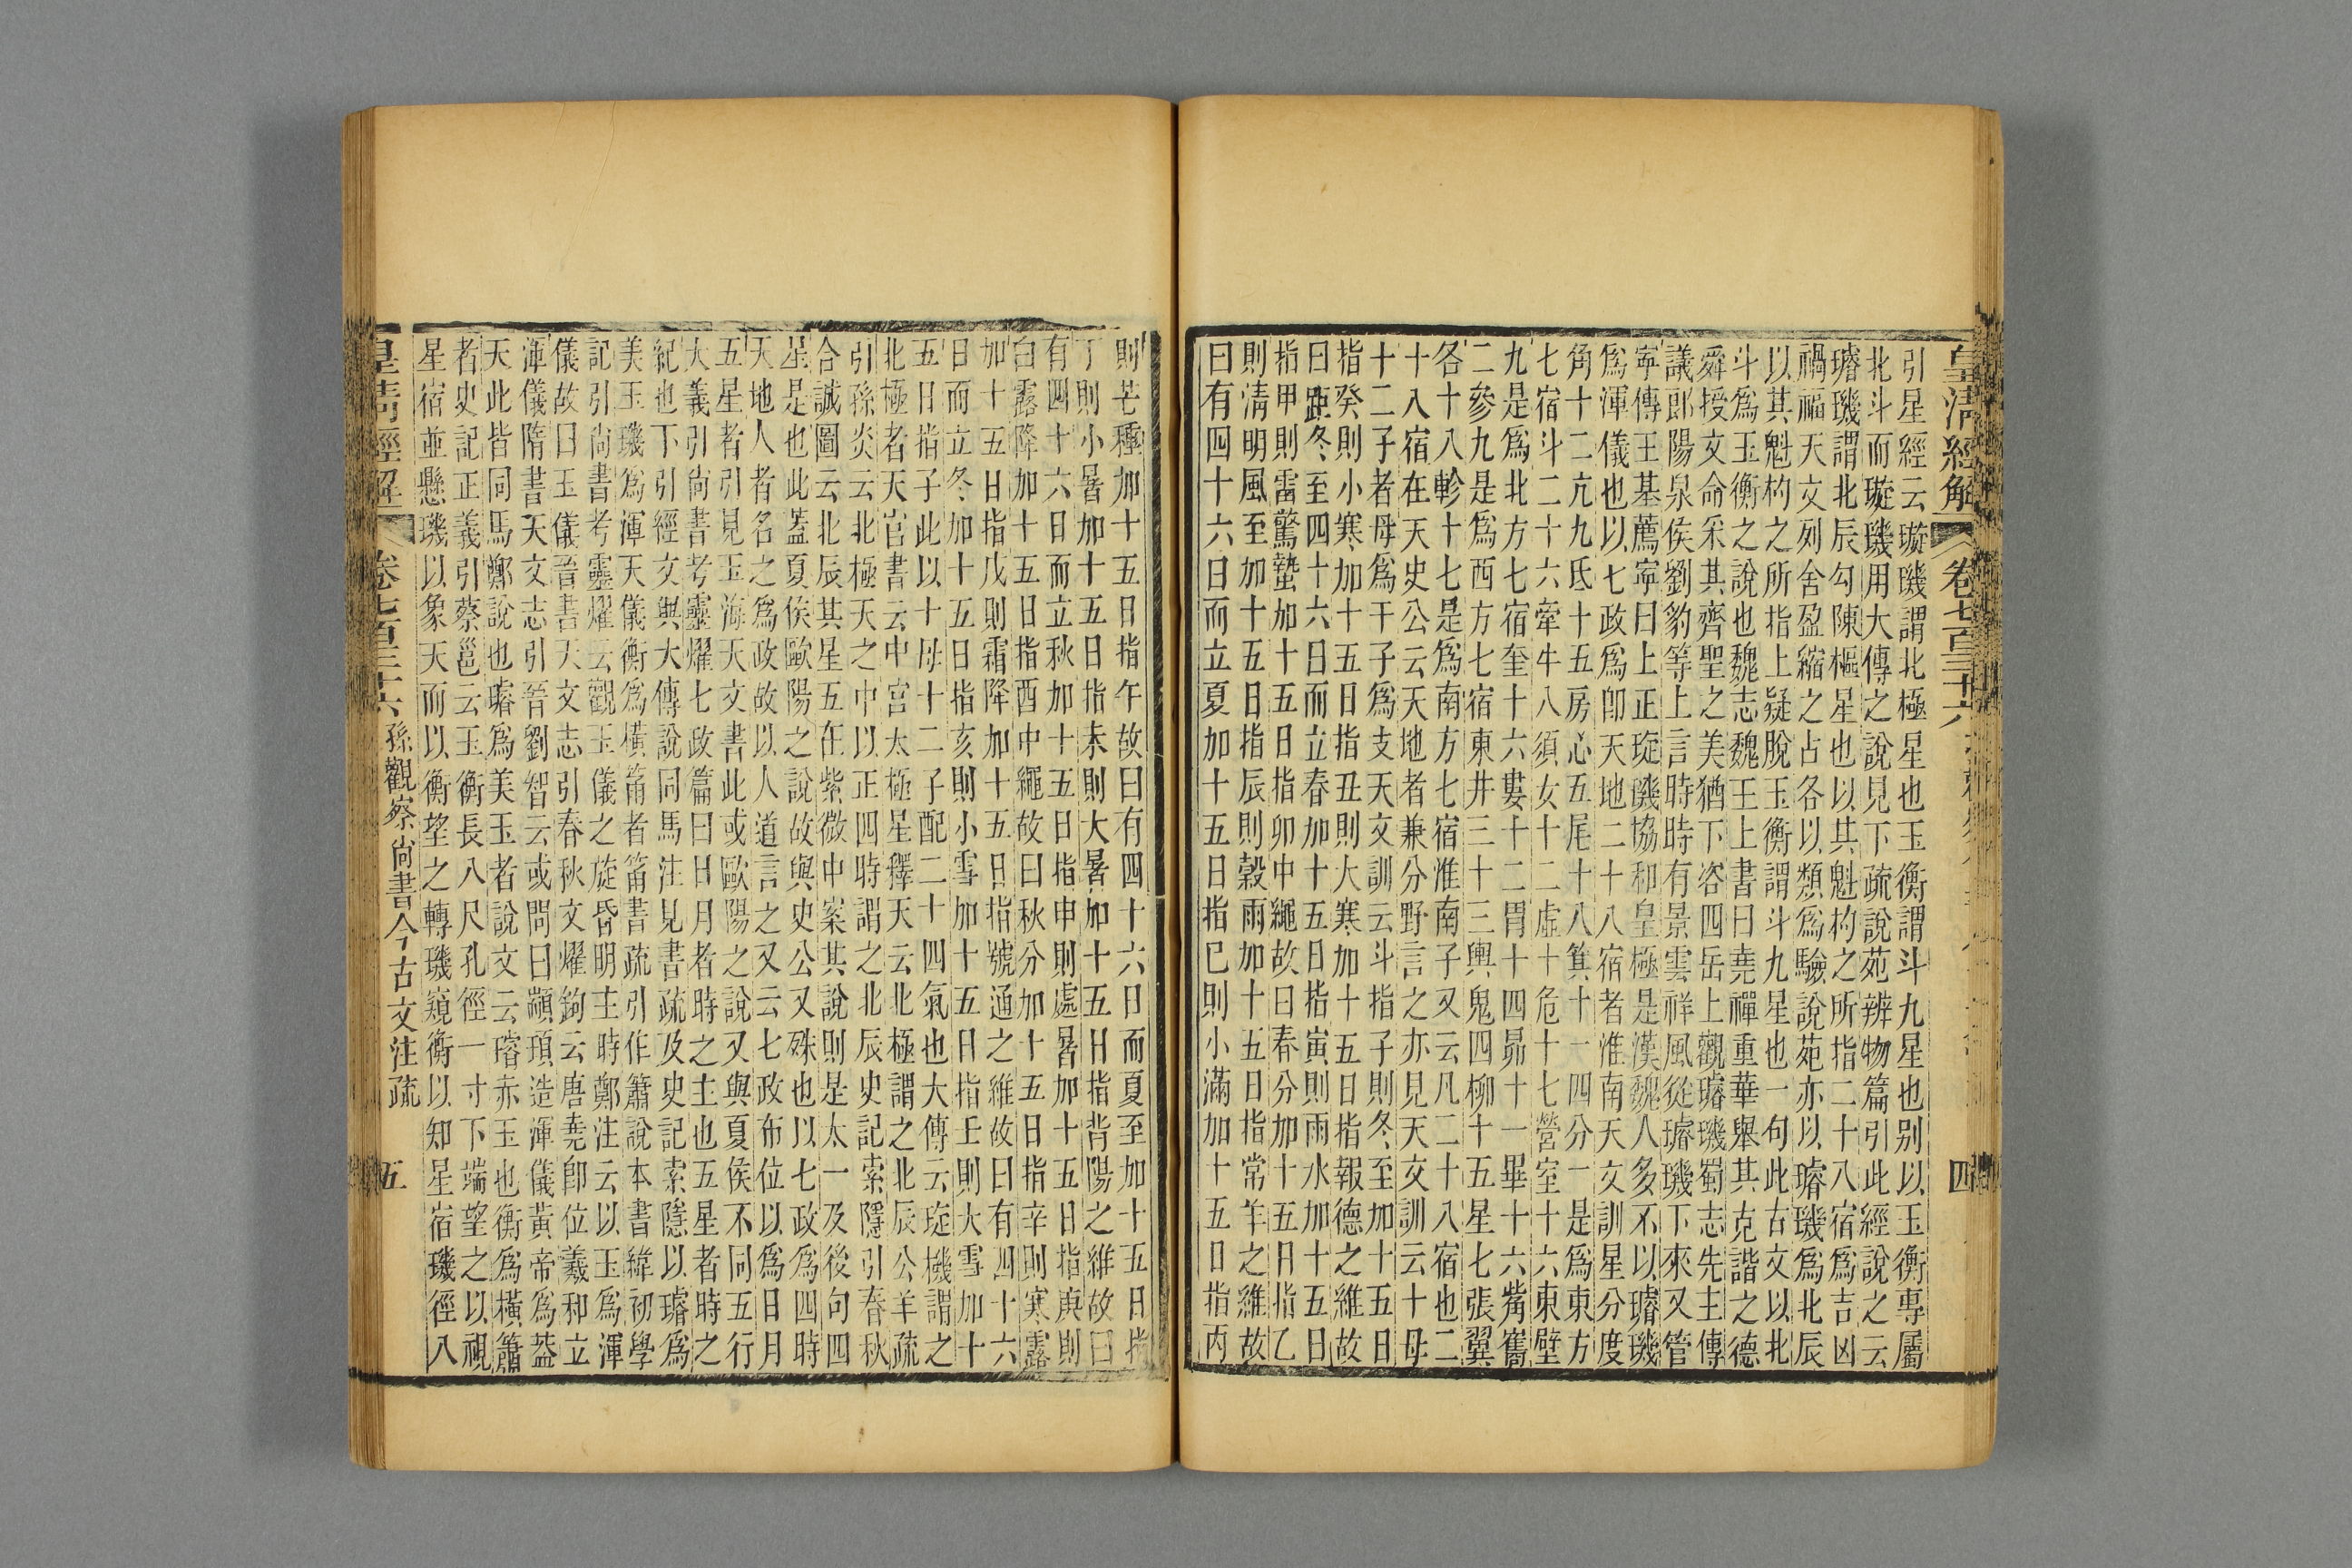 皇清經解 卷七百三十六 四
引星經云璇璣謂北極星也玉衡謂斗九星也别以玉衡專屬
北斗而璇璣用大傳之說見下疏說苑辨物篇引此經說之云
璿璣謂北辰勾陳樞星也以其魁杓之所指二十八宿爲吉凶
禍福天文列舍盈縮之占各以類爲驗說苑亦以璿璣爲北辰
以其魁杓之所指上疑脫玉衡謂斗九星也一句此古文以北
斗爲玉衡之說也魏志魏王上書曰堯禪重華舉其克諧之德
舜授文命采其齊聖之美猶下咨四岳上觀璿璣蜀志先主傳
議郎陽泉侯劉豹等上言時時有景雲祥風從璿璣下來又管
寧傳王基薦寧曰上正琁璣協和皇極是漢魏人多不以璿璣
爲渾儀也以七政爲卽天地二十八宿者淮南天文訓星分度
角十二亢九氐十五房心五尾十八箕十一四分一是爲東方
七宿斗二十六牽牛八須女十二虛十危十七營室十六東壁
九是爲北方七宿奎十六婁十二胃十四昴十一畢十六觜嶲
二參九是爲西方七宿東井三十三輿鬼四柳十五星七張翼
各十八軫十七是爲南方七宿淮南子又云凡二十八宿也二
十八宿在天史公云天地者兼分野言之亦見天文訓云十母
十二子者母爲干子爲支天文訓云斗指子則冬至加十五日
指癸則小寒加十五日指丑則大寒加十五日指報德之維故
曰距冬至四十六日而立春加十五日指寅則雨水加十五日
指甲則雷驚蟄加十五日指卯中繩故曰春分加十五日指乙
則淸明風至加十五日指辰則穀雨加十五日指常羊之維故
曰有四十六日而立夏加十五日指巳則小滿加十五日指丙
則芒種加十五日指午故曰有四十六日而夏至加十五日指
丁則小暑加十五日指未則大暑加十五日指背陽之維故曰
有四十六日而立秋加十五日指申則處暑加十五日指庚則
白露降加十五日指酉中繩故曰秋分加十五日指辛則寒露
加十五日指戊則霜降加十五日指號通之維故曰有四十六
日而立冬加十五日指亥則小雪加十五日指壬則大雪加十
五日指子此以十母十二子配二十四氣也大傳云琁機謂之
北極者天官書云中宮太極星釋天云北極謂之北辰公羊疏
引孫炎云北極天之中以正四時謂之北辰史記索隱引春秋
合誠圖云北辰其星五在紫微中案其說則是太一及後句四
星是也此蓋夏侯歐陽之說故與史公又殊也以七政爲四時
天地人者名之爲政故以人道言之又云七政布位以爲日月
五星者引見玉海天文書此或歐陽之說又與夏侯不同五行
大義引尙書考靈燿七政篇曰日月者時之主也五星者時之
紀也下引經文與大傳說同馬注見書疏及史記索隱以璿爲
美玉璣爲渾天儀衡爲橫筩者筩書疏引作簫說本書緯初學
記引尙書考靈燿云觀玉儀之旋昏明主時鄭注云以玉爲渾
儀故曰玉儀晉書天文志引春秋文燿鉤云唐堯卽位羲和立
渾儀隋書天文志引晉劉智云或問曰顓頊造渾儀黃帝爲蓋
天此皆同馬鄭說也璿爲美玉者說文云璿赤玉也衡爲橫簫
者史記正義引蔡邕云玉衡長八尺孔徑一寸下端望之以視
星宿並懸璣以象天而以衡望之轉璣窺衡以知星宿璣徑八
皇清經解 卷七百三十六 孫觀察尙書今古文注疏 五